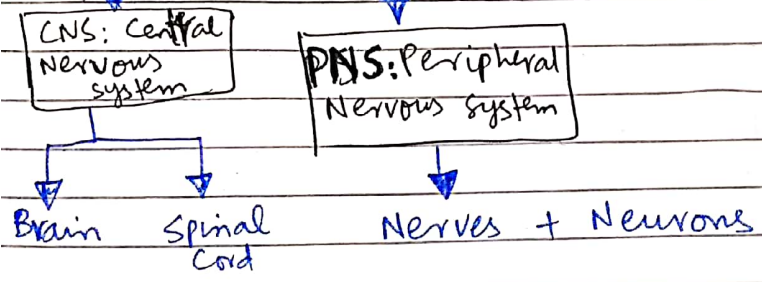 CNS: Central
Nervous
system
PNS: Peripheral
Nervous System
Brain
Spinal
Cord
Nerves + Neurons